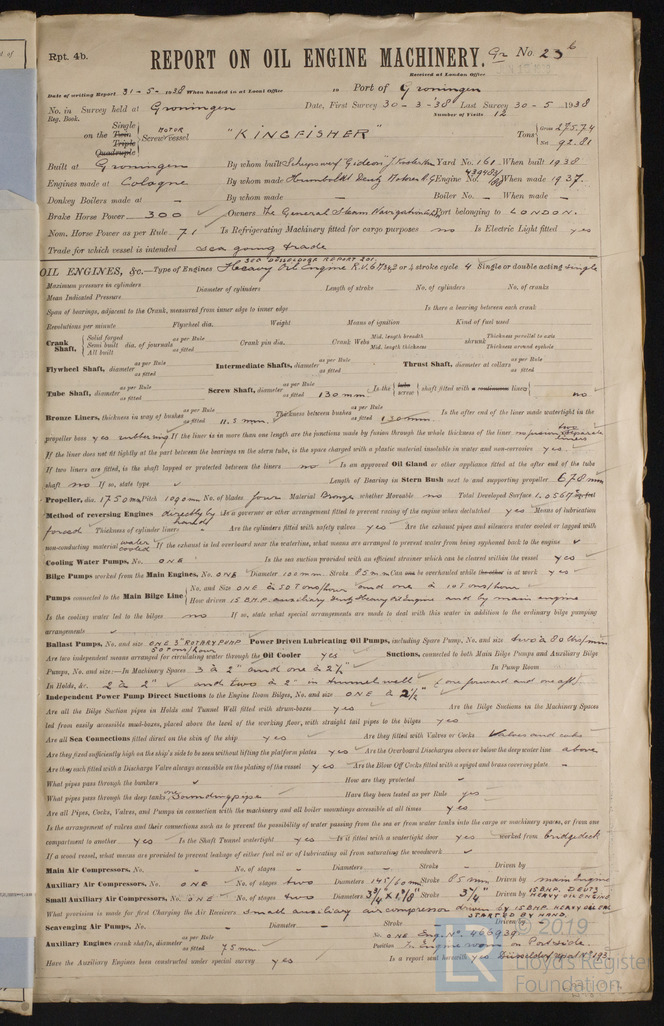 Rpt. 4b.
REPORT ON OIL ENGINE MACHINERY. Gr No. 23 b
Received at London Office
Date of writing Report 31-5-1938 When handed in at Local Office 19 Port of Groningen
No. in Survey held at Groningen Date, First Survey 30-3-38 Last Survey 30-5 1938
Reg. Book. Number of Visits 12
Single
on the Twin MOTOR Screw vessel "KINGFISHER" Tons Gross 275.74
Triple Net 92.81
Quadruple
Built at Groningen By whom built Scheepswerf "Gideon" J. Koster Hzn Yard No. 161 When built 1938
Engines made at Cologne By whom made Humboldt Deutz Motoren A.G. Engine No. When made 1937.
Donkey Boilers made at - By whom made - Boiler No. - When made -
Brake Horse Power 300 Owners The General Steam Navigation Port belonging to LONDON.
Nom. Horse Power as per Rule 71 Is Refrigerating Machinery fitted for cargo purposes no Is Electric Light fitted yes
Trade for which vessel is intended sea going trade
SEE DÜSSELDORF REPORT 201.
OIL ENGINES, &c.—Type of Engines Heavy Oil Engine 2 or 4 stroke cycle 4 Single or double acting single
Maximum pressure in cylinders Diameter of cylinders Length of stroke No. of cylinders No. of cranks
Mean Indicated Pressure
Span of bearings, adjacent to the Crank, measured from inner edge to inner edge Is there a bearing between each crank
Revolutions per minute Flywheel dia. Weight Means of ignition Kind of fuel used
Crank Shaft, Solid forged Semi built All built dia. of journals as per Rule as fitted Crank pin dia. Crank Webs Mid. length breadth Mid. length thickness shrunk Thickness parallel to axis Thickness around eyehole
Flywheel Shaft, diameter as per Rule as fitted Intermediate Shafts, diameter as per Rule as fitted Thrust Shaft, diameter at collars as per Rule as fitted
Tube Shaft, diameter as per Rule as fitted Screw Shaft, diameter as per Rule as fitted 130 mm Is the tube screw shaft fitted with a continuous liner no
Bronze Liners, thickness in way of bushes as per Rule as fitted 11.5 mm. Thickness between bushes as per Rule as fitted 130 mm Is the after end of the liner made watertight in the
propeller boss yes rubberring If the liner is in more than one length are the junctions made by fusion through the whole thickness of the liner no two separate liners
If the liner does not fit tightly at the part between the bearings in the stern tube, is the space charged with a plastic material insoluble in water and non-corrosive yes.
If two liners are fitted, is the shaft lapped or protected between the liners no Is an approved Oil Gland or other appliance fitted at the after end of the tube
shaft no If so, state type Length of Bearing in Stern Bush next to and supporting propeller 678 mm
Propeller, dia. 1750 mm Pitch 1090 mm No. of blades four Material Bronze whether Moveable no Total Developed Surface 1.0567 sq. feet
Method of reversing Engines directly by hand Is a governor or other arrangement fitted to prevent racing of the engine when declutched yes Means of lubrication
forced Thickness of cylinder liners Are the cylinders fitted with safety valves yes Are the exhaust pipes and silencers water cooled or lagged with
non-conducting material water cooled If the exhaust is led overboard near the waterline, what means are arranged to prevent water from being syphoned back to the engine
Cooling Water Pumps, No. ONE Is the sea suction provided with an efficient strainer which can be cleared within the vessel yes
Bilge Pumps worked from the Main Engines, No. ONE Diameter 100 mm. Stroke 85 mm Can one be overhauled while the other is at work yes
Pumps connected to the Main Bilge Line No. and Size ONE à 50 Tons/hour and one à 10 Tons/hour
How driven 15 B.H.P. auxiliary Deutz Heavy Oil Engine and by main engine
Is the cooling water led to the bilges no If so, state what special arrangements are made to deal with this water in addition to the ordinary bilge pumping
arrangements
Ballast Pumps, No. and size ONE 3" ROTARY PUMP 50 tons/hour Power Driven Lubricating Oil Pumps, including Spare Pump, No. and size two à 80 lbs/min
Are two independent means arranged for circulating water through the Oil Cooler yes Suctions, connected to both Main Bilge Pumps and Auxiliary Bilge
Pumps, No. and size:—In Machinery Spaces 3 à 2" and one à 2½" In Pump Room
In Holds, &c. 2 à 2" and two à 2" in tunnelwell (one forward and one aft)
Independent Power Pump Direct Suctions to the Engine Room Bilges, No. and size ONE à 2½"
Are all the Bilge Suction pipes in Holds and Tunnel Well fitted with strum-boxes yes Are the Bilge Suctions in the Machinery Spaces
led from easily accessible mud-boxes, placed above the level of the working floor, with straight tail pipes to the bilges yes
Are all Sea Connections fitted direct on the skin of the ship yes Are they fitted with Valves or Cocks Valves and cocks
Are they fixed sufficiently high on the ship's side to be seen without lifting the platform plates yes Are the Overboard Discharges above or below the deep water line above
Are they each fitted with a Discharge Valve always accessible on the plating of the vessel yes Are the Blow Off Cocks fitted with a spigot and brass covering plate -
What pipes pass through the bunkers How are they protected
What pipes pass through the deep tanks one Soundingpipe Have they been tested as per Rule yes
Are all Pipes, Cocks, Valves, and Pumps in connection with the machinery and all boiler mountings accessible at all times yes
Is the arrangement of valves and their connections such as to prevent the possibility of water passing from the sea or from water tanks into the cargo or machinery spaces, or from one
compartment to another yes Is the Shaft Tunnel watertight yes Is it fitted with a watertight door yes worked from bridgedeck
If a wood vessel, what means are provided to prevent leakage of either fuel oil or of lubricating oil from saturating the woodwork
Main Air Compressors, No. No. of stages - Diameters Stroke Driven by
Auxiliary Air Compressors, No. ONE No. of stages two Diameters 145/60 mm Stroke 85 mm Driven by main Engine
Small Auxiliary Air Compressors, No. ONE No. of stages two Diameters 3¾" x 1⅛" Stroke 3¾" Driven by 15 B.H.P. DEUTZ HEAVY OIL ENGINE
What provision is made for first Charging the Air Receivers small auxiliary air compressor driven by 15 B.H.P. HEAVY OIL ENG. STARTED BY HAND.
Scavenging Air Pumps, No. - Diameter - Stroke - Driven by -
Auxiliary Engines crank shafts, diameter as per Rule as fitted 75 mm No. ONE Eng. No. 466939
Position In Engine room on Port side
Have the Auxiliary Engines been constructed under special survey yes Is a report sent herewith yes Düsseldorf report No. 193
© 2019
Lloyd's Register
Foundation